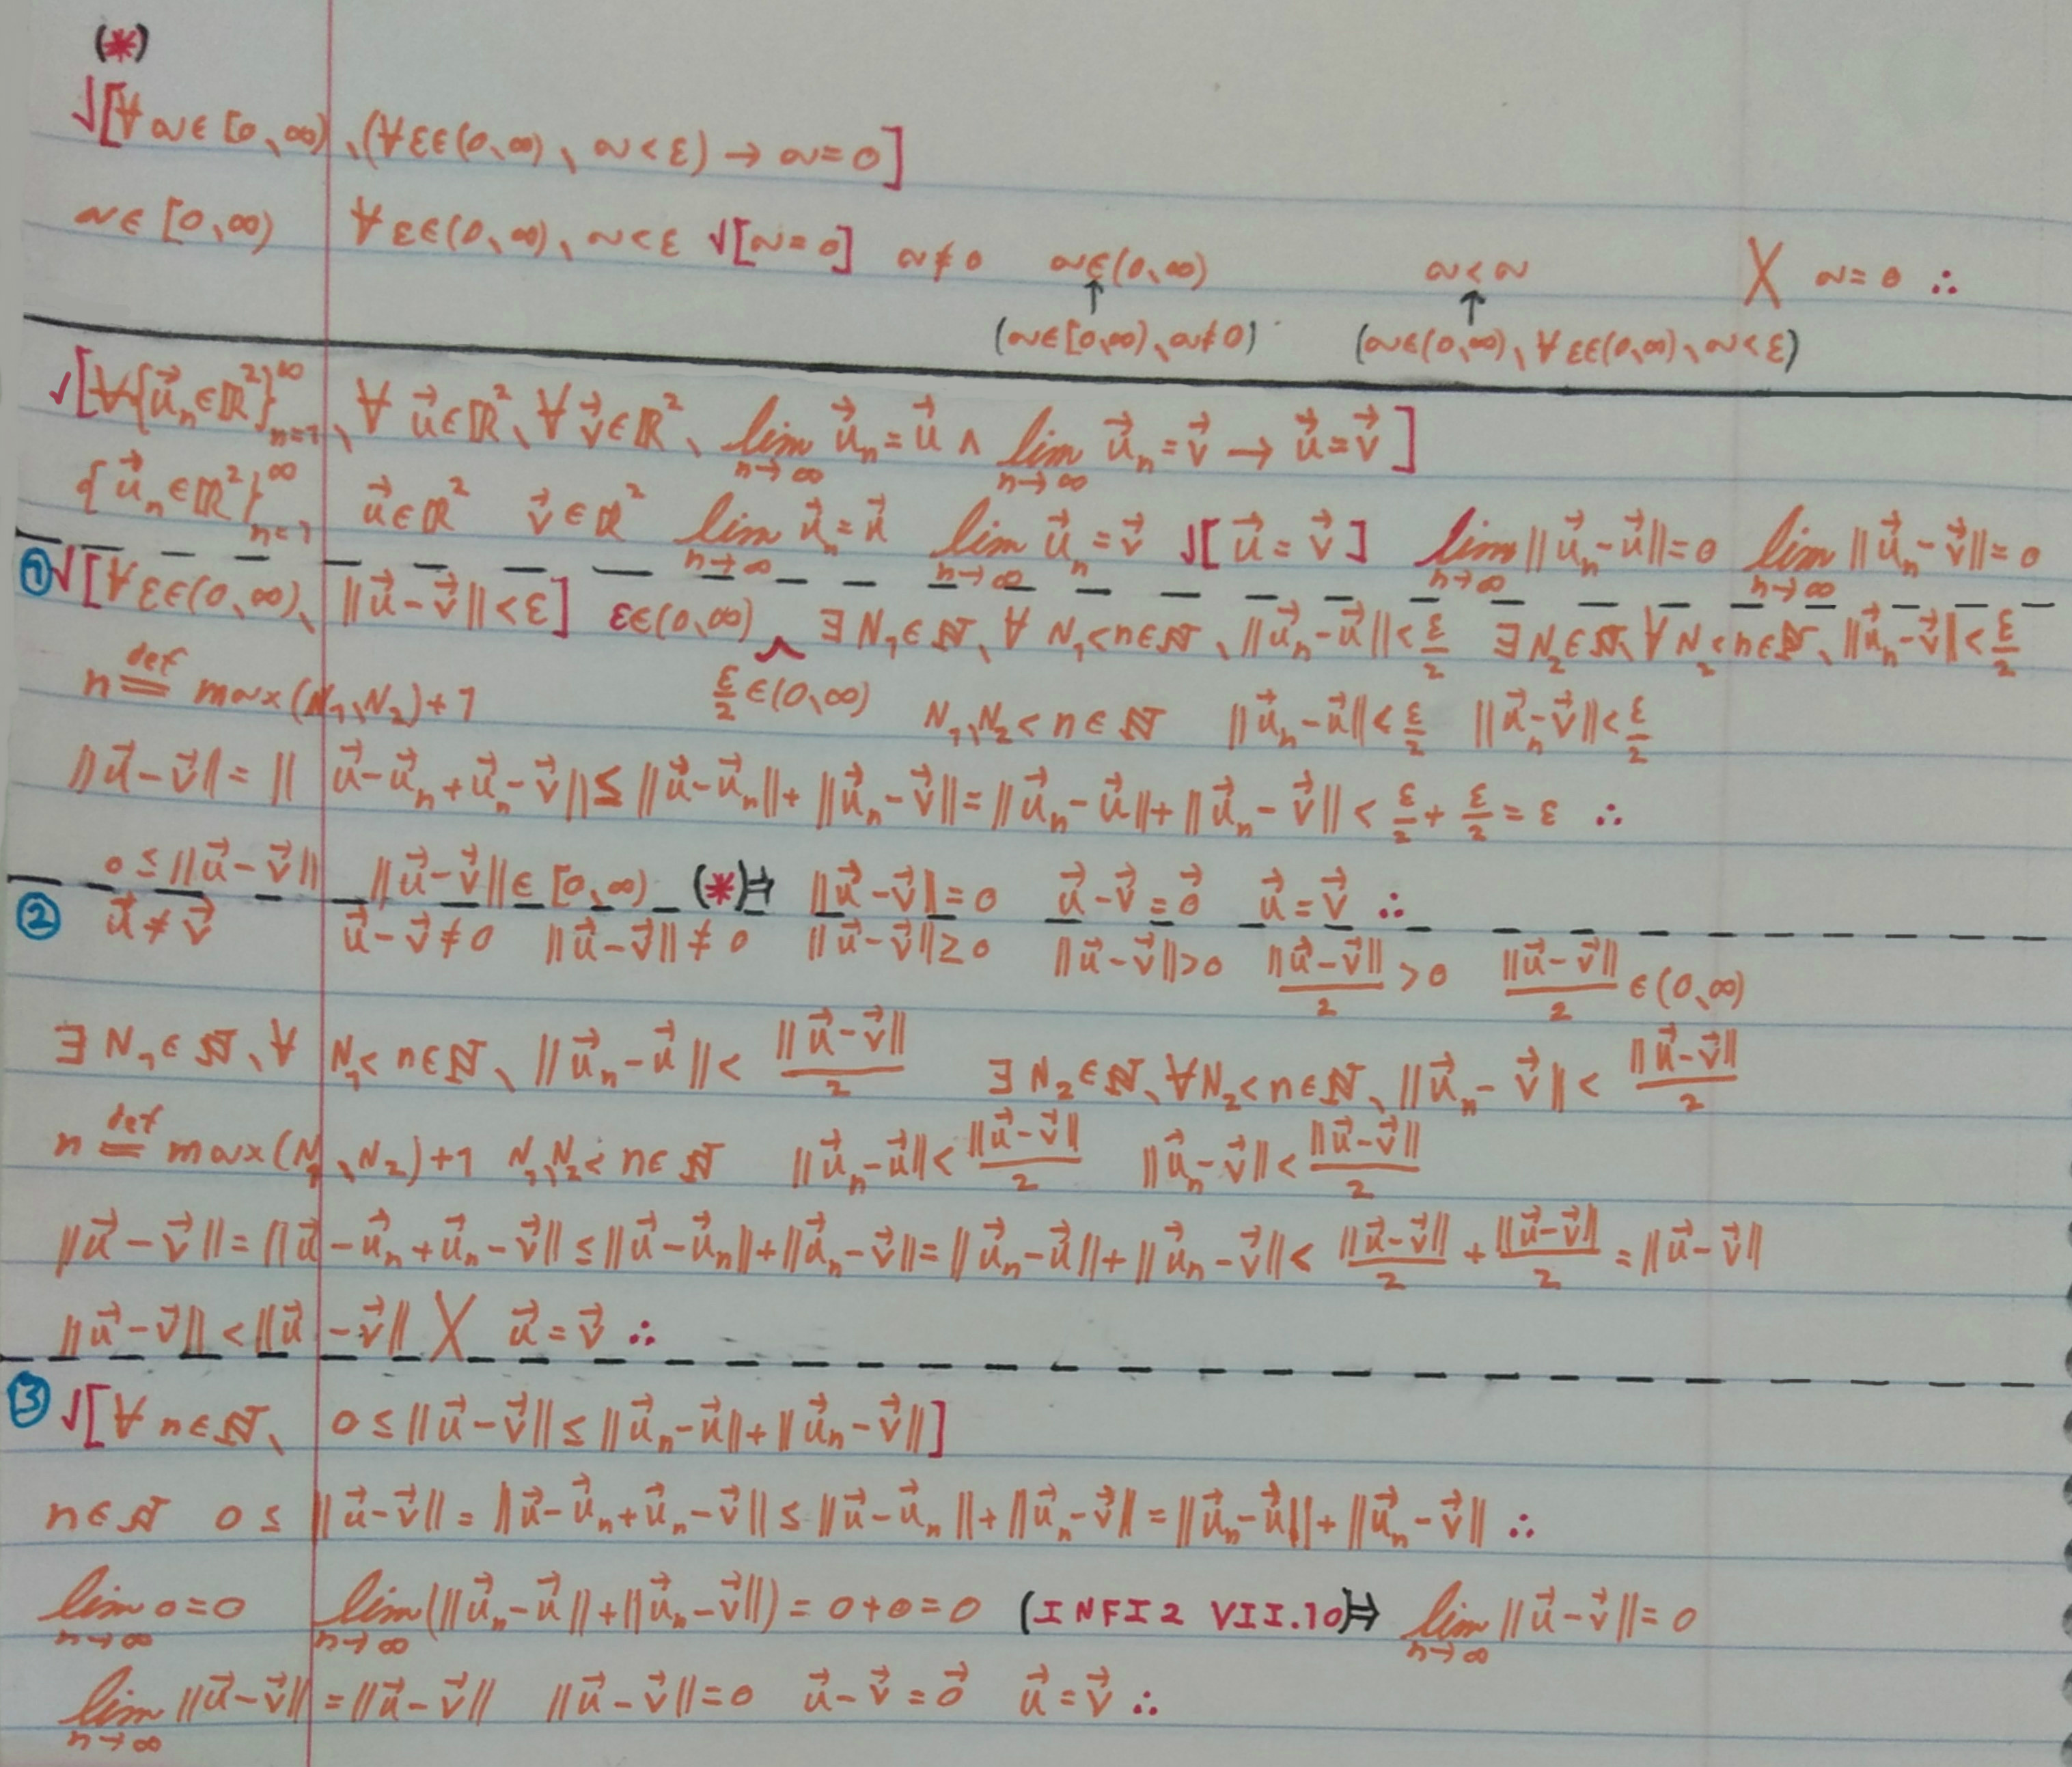 (*)
√[∀a∈[0,∞)、(∀ε∈(0,∞)、a<ε)→a=0]
a∈[0,∞) ∀ε∈(0,∞)、a<ε √[a=0] a≠0 a∈(0,∞) a<a X a=0 ∴
↑ ↑
(a∈[0,∞)、a≠0) (a∈(0,∞)、∀ε∈(0,∞)、a<ε)
√[∀{u⃗ₙ∈ℝ²}ₙ₌₁^∞、∀u⃗∈ℝ²、∀v⃗∈ℝ²、lim_{n→∞} u⃗ₙ=u⃗ ∧ lim_{n→∞} u⃗ₙ=v⃗ → u⃗=v⃗]
{u⃗ₙ∈ℝ²}ₙ₌₁^∞ u⃗∈ℝ² v⃗∈ℝ² lim_{n→∞} u⃗ₙ=u⃗ lim_{n→∞} u⃗ₙ=v⃗ √[u⃗=v⃗] lim_{n→∞} ||u⃗ₙ-u⃗||=0 lim_{n→∞} ||u⃗ₙ-v⃗||=0
① √[∀ε∈(0,∞)、||u⃗-v⃗||<ε] ε∈(0,∞) ∃N₁∈ℕ、∀N₁<n∈ℕ、||u⃗ₙ-u⃗||<ε/2 ∃N₂∈ℕ、∀N₂<n∈ℕ、||u⃗ₙ-v⃗||<ε/2
^
ε/2∈(0,∞)
n def= max(N₁、N₂)+1 N₁、N₂<n∈ℕ ||u⃗ₙ-u⃗||<ε/2 ||u⃗ₙ-v⃗||<ε/2
||u⃗-v⃗||=||u⃗-u⃗ₙ+u⃗ₙ-v⃗||≤||u⃗-u⃗ₙ||+||u⃗ₙ-v⃗||=||u⃗ₙ-u⃗||+||u⃗ₙ-v⃗||<ε/2+ε/2=ε ∴
0≤||u⃗-v⃗|| ||u⃗-v⃗||∈[0,∞) (*)⇒ ||u⃗-v⃗||=0 u⃗-v⃗=0⃗ u⃗=v⃗ ∴
② u⃗≠v⃗ u⃗-v⃗≠0 ||u⃗-v⃗||≠0 ||u⃗-v⃗||≥0 ||u⃗-v⃗||>0 ||u⃗-v⃗||/2>0 ||u⃗-v⃗||/2∈(0,∞)
∃N₁∈ℕ、∀N₁<n∈ℕ、||u⃗ₙ-u⃗||<||u⃗-v⃗||/2 ∃N₂∈ℕ、∀N₂<n∈ℕ、||u⃗ₙ-v⃗||<||u⃗-v⃗||/2
n def= max(N₁、N₂)+1 N₁、N₂<n∈ℕ ||u⃗ₙ-u⃗||<||u⃗-v⃗||/2 ||u⃗ₙ-v⃗||<||u⃗-v⃗||/2
||u⃗-v⃗||=||u⃗-u⃗ₙ+u⃗ₙ-v⃗||≤||u⃗-u⃗ₙ||+||u⃗ₙ-v⃗||=||u⃗ₙ-u⃗||+||u⃗ₙ-v⃗||<||u⃗-v⃗||/2+||u⃗-v⃗||/2=||u⃗-v⃗||
||u⃗-v⃗||<||u⃗-v⃗|| X u⃗=v⃗ ∴
③ √[∀n∈ℕ、0≤||u⃗-v⃗||≤||u⃗ₙ-u⃗||+||u⃗ₙ-v⃗||]
n∈ℕ 0≤||u⃗-v⃗||=||u⃗-u⃗ₙ+u⃗ₙ-v⃗||≤||u⃗-u⃗ₙ||+||u⃗ₙ-v⃗||=||u⃗ₙ-u⃗||+||u⃗ₙ-v⃗|| ∴
lim_{n→∞} 0=0 lim_{n→∞} (||u⃗ₙ-u⃗||+||u⃗ₙ-v⃗||)=0+0=0 (INFI2 VII.10)⇒ lim_{n→∞} ||u⃗-v⃗||=0
lim_{n→∞} ||u⃗-v⃗||=||u⃗-v⃗|| ||u⃗-v⃗||=0 u⃗-v⃗=0⃗ u⃗=v⃗ ∴